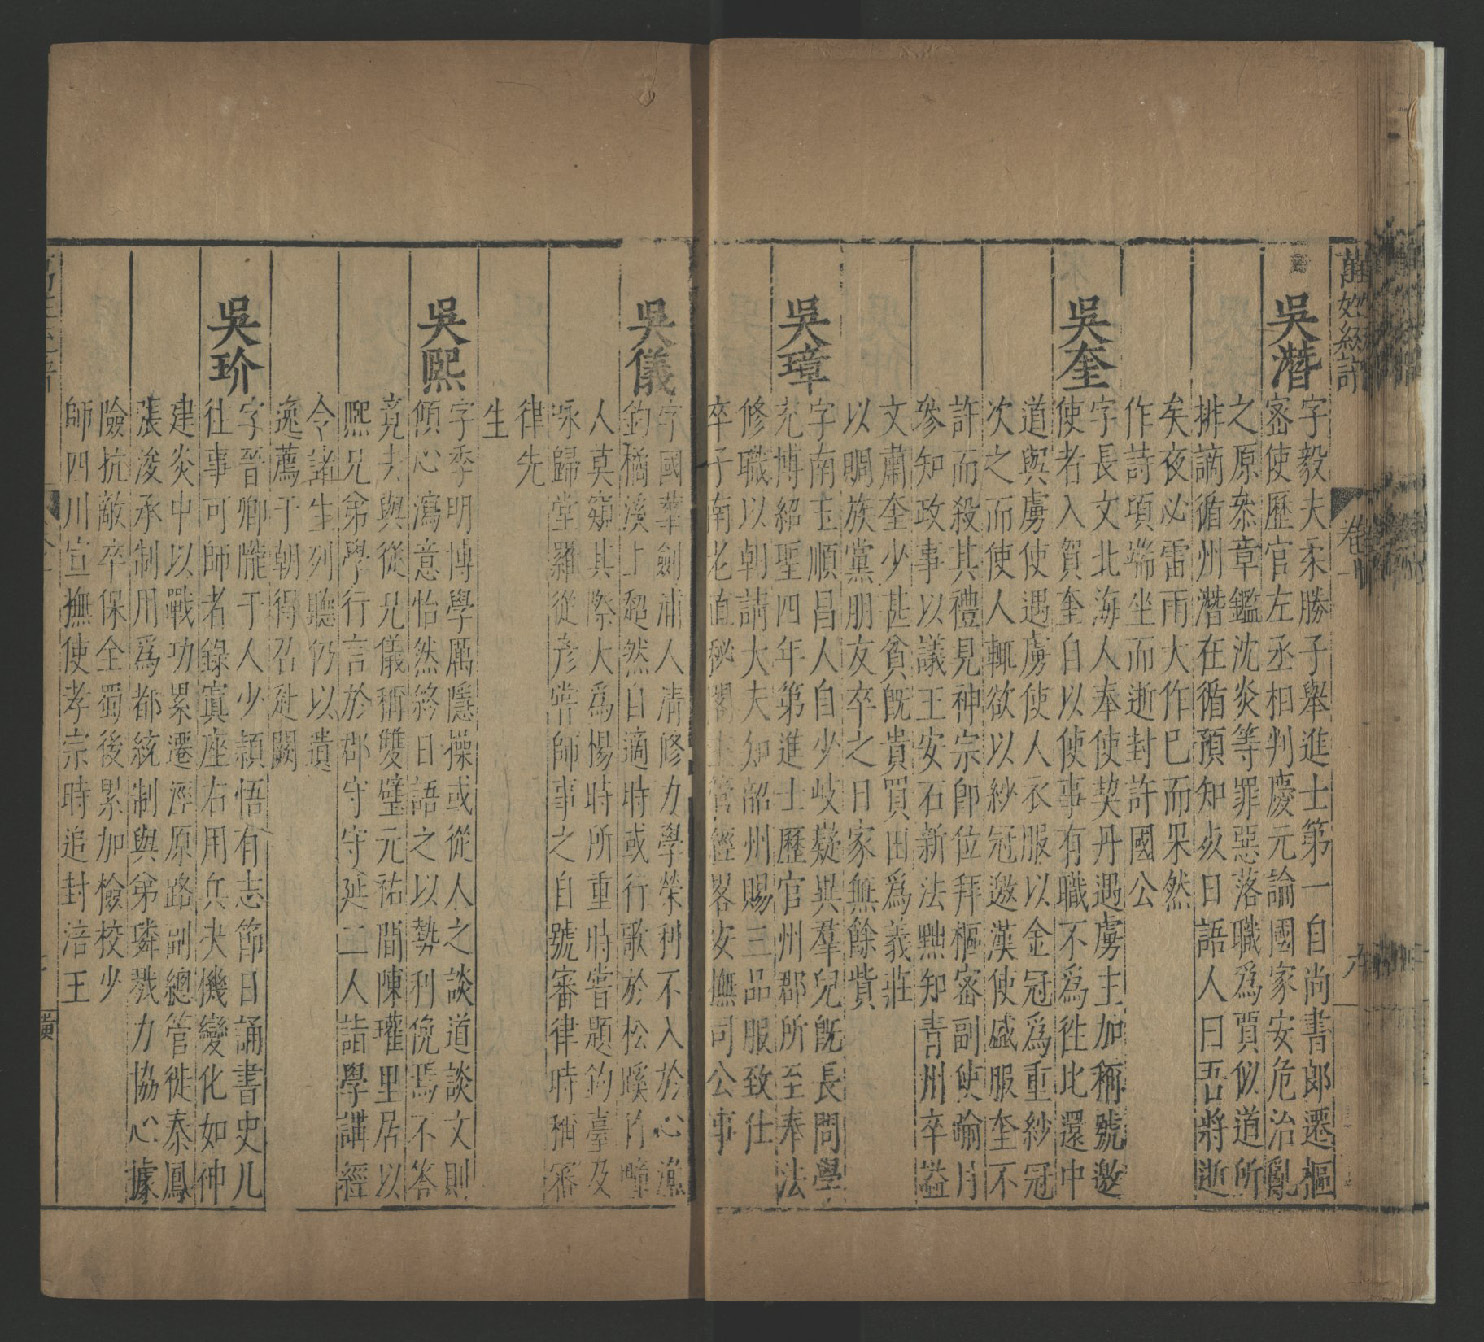 萬姓統譜
卷十
六
吳潛
字毅夫柔勝子舉進士第一自尚書郎遷樞
密使歷官左丞相判慶元論國家安危治亂
之原叅章鑑沈炎等罪惡落職爲賈似道所
排謫循州潛在循預知死日語人曰吾將逝
矣夜必雷雨大作巳而果然
作詩頌端坐而逝封許國公
吳奎
字長文北海人奉使契丹遇虜主加稱號邀
使者入賀奎自以使事有職不爲徃比還中
道與虜使遇虜使人衣服以金冠爲重紗冠
次之而使人輒欲以紗冠邀漢使盛服奎不
許而殺其禮見神宗卽位拜樞密副使踰月
叅知政事以議王安石新法黜知青州卒謚
文肅奎少甚貧旣貴買田爲義莊
以賙族黨朋友卒之日家無餘貲
吳璋
字南玉順昌人自少岐嶷異羣兒旣長問學
充博紹聖四年第進士歷官州郡所至奉法
修職以朝請大夫知韶州賜三品服致仕
卒子南老直秘閣主管經畧安撫司公事
吳儀
字國華劍浦人清修力學榮利不入於心漁
釣橘溪上超然自適時或行歌於松蹊竹疃
人莫窺其際大爲楊時所重時嘗題釣臺及
咏歸堂羅從彥嘗師事之自號審律時稱審
律先
生
吳熙
字季明博學厲隱操或從人之談道談文則
傾心瀉意怡然終日語之以勢利俛焉不答
竟去與從兄儀稱雙璧元祐間陳瓘里居以
熙兄弟學行言於郡守守延二人詣學講經
令諸生列聽仍以遺
逸薦于朝得召赴闕
吳玠
字晉卿隴于人少頴悟有志節日誦書史凡
徃事可師者錄寘座右用兵夬機變化如神
建炎中以戰功累遷涇原路副總管徙秦鳳
張浚承制用爲都統制與弟璘戮力協心據
險抗敵卒保全蜀後累加檢校少
師四川宣撫使孝宗時追封涪王